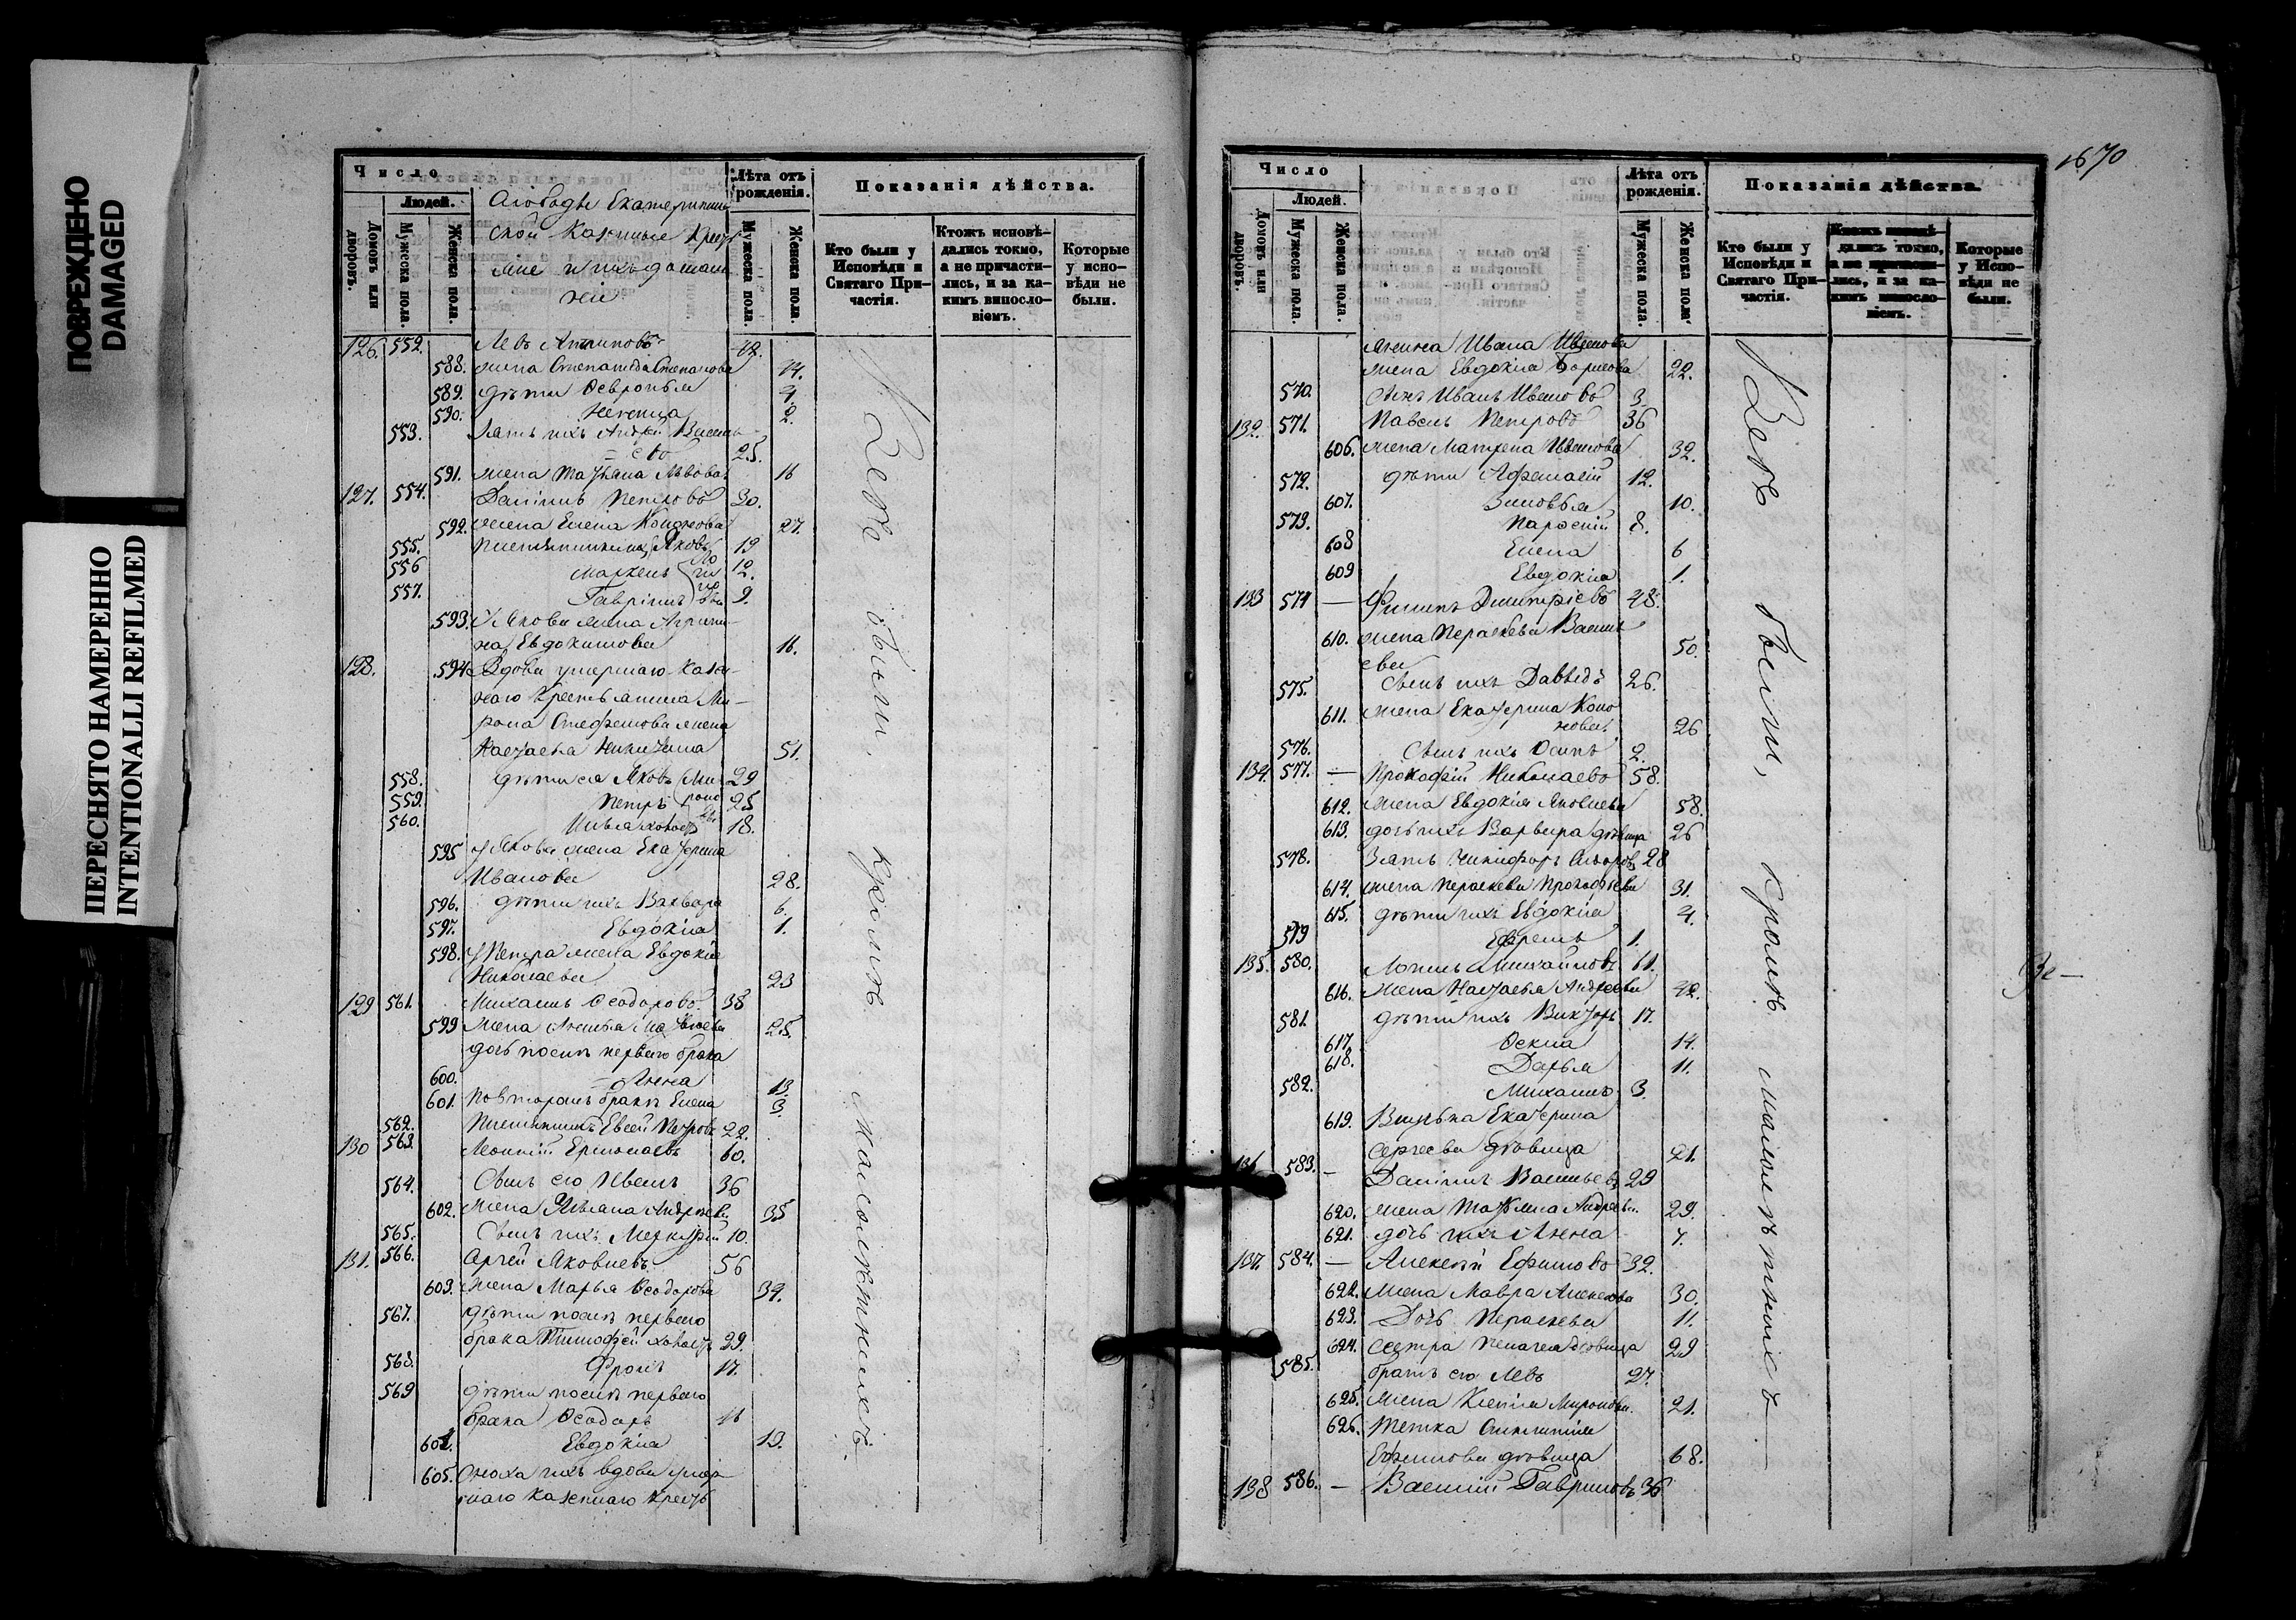 ПОВРЕЖДЕНО
DAMAGED
ПЕРЕСНЯТО НАМЕРЕННО
INTENTIONALLI REFILMED
Число
Людей.
Домовъ или дворовъ.
Мужеска пола.
Женска пола.
Слободы Екатеринин
ской Казенные Крестья
мне и ихъ домаш
неи
Лѣта отъ рожденія.
Мужеска пола.
Женска пола.
Показанія дѣйства.
Кто были у Исповѣди и Святаго При-частія.
Ктожъ исповѣ-дались токмо, а не причасти-лись, и за ка-кимъ винослο-віемъ.
Которые у испо-вѣди не были.
126. 552. Левъ Антиповъ 42.
588. жена Степанида Степанова
589. дѣти Февронья 4.
590. 2.
553. Зять ихъ Андрей Василь
евъ 25.
591. жена Татьяна Львова 16
127. 554. Даніилъ Петровъ 30.
592. жена Елена 27.
555. племянники ихъ Яковъ 19
556 Маркелъ 12.
557. Гавріилъ 9.
593. У Якова жена Агрипи
на Евдокимова 16.
128. 594 Вдова умершаго Казе
ннаго Крестьянина Ми-
рона Стефанова жена
Настасья Никитина 51.
558. дѣти ея Яковъ 29
559. Петръ 25
560. Илья холостъ 18.
595 у Якова жена Екатерина
Иванова 28.
596. дѣти ихъ Варвара 6.
597. Евдокіа 1.
598. у Петра жена Евдокіа
Николаева 23
129 561. Михаилъ Ѳеодоровъ 38
599 жена 25.
дочь посемъ перваго брака
600. Анна 13.
601. Повторомъ бракѣ Елена 3.
562. Племянникъ Евсей Петровъ 22.
130 563. Леонтій Ермолаевъ 60.
564. Сынъ его Иванъ 36
602. жена Ульяна Андреева 35
565. Сынъ ихъ Меркурій 10.
131. 566. Сергей Яковлевъ 56
603. жена Марья Ѳеодорова 39.
567. дѣти посемъ перваго
брака Тимофей холостъ 29.
568. Фролъ 17.
569 дѣти посемъ перваго
брака Ѳеодоръ 16
604. Евдокіа 13.
605. Сноха ихъ вдова умер
шаго Казеннаго Крестья
Всѣ были, кромѣ малолѣтнихъ.
1670
Число
Людей.
Домовъ или дворовъ.
Мужеска пола.
Женска пола.
Лѣта отъ рожденія.
Мужеска пола.
Женска пола.
Показанія дѣйства.
Кто были у Исповѣди и Святаго При-частія.
Которые у Испо-вѣди не были.
янина Ивана Иванова
жена Евдокіа Борисова 22.
570. Сынъ Иванъ Ивановъ 3
132. 571. Павелъ Петровъ 36
606. жена Матрена Иванова 32.
572. дѣти Афанасій 12.
607. Зиновья 10.
573. 8.
608 Елена 6
609 Евдокіа 1.
133 574 — Филипъ Дмитріевъ 48.
610. жена Параскева Василь
ева 50.
575. Сынъ ихъ Давыдъ 26.
611. жена Екатерина Коно
нова 26
576. Сынъ ихъ Осипъ 2.
134. 577. — Прокофій Николаевъ 58.
612. жена Евдокія Яковлева 58.
613. дочь ихъ Варвара дѣвица 26
578. Зять Никифоръ Сидоровъ 28
614. жена Параскева Прокофьева 31.
615. дѣти ихъ Евдокіа 4.
579 Ефремъ 1.
135. 580. Логинъ Михайловъ 61.
616. жена Настасья Андреева 42.
581. дѣти ихъ Викторъ 17.
617. Ѳекла 14.
618. Дарья 11.
582. Михаилъ 3.
619. Внучка Екатерина
Сергеева дѣвица 21.
136 583. — Даніилъ Васильевъ 29
620. жена Татьяна Андреева 29.
621. дочь ихъ Анна
137. 584. — Алексѣй Ефимовъ 32.
622. жена Мавра Алексѣева 30.
623. Дочь Параскева 11.
624. Сестра Пелагея дѣвица 29
585. братъ его Левъ 27.
625. жена Ксенія Миронова 21.
626. тетка
Ефимова дѣвица 68.
138 586. — Василій Гавриловъ 36
Всѣ были, кромѣ малолѣтнихъ —